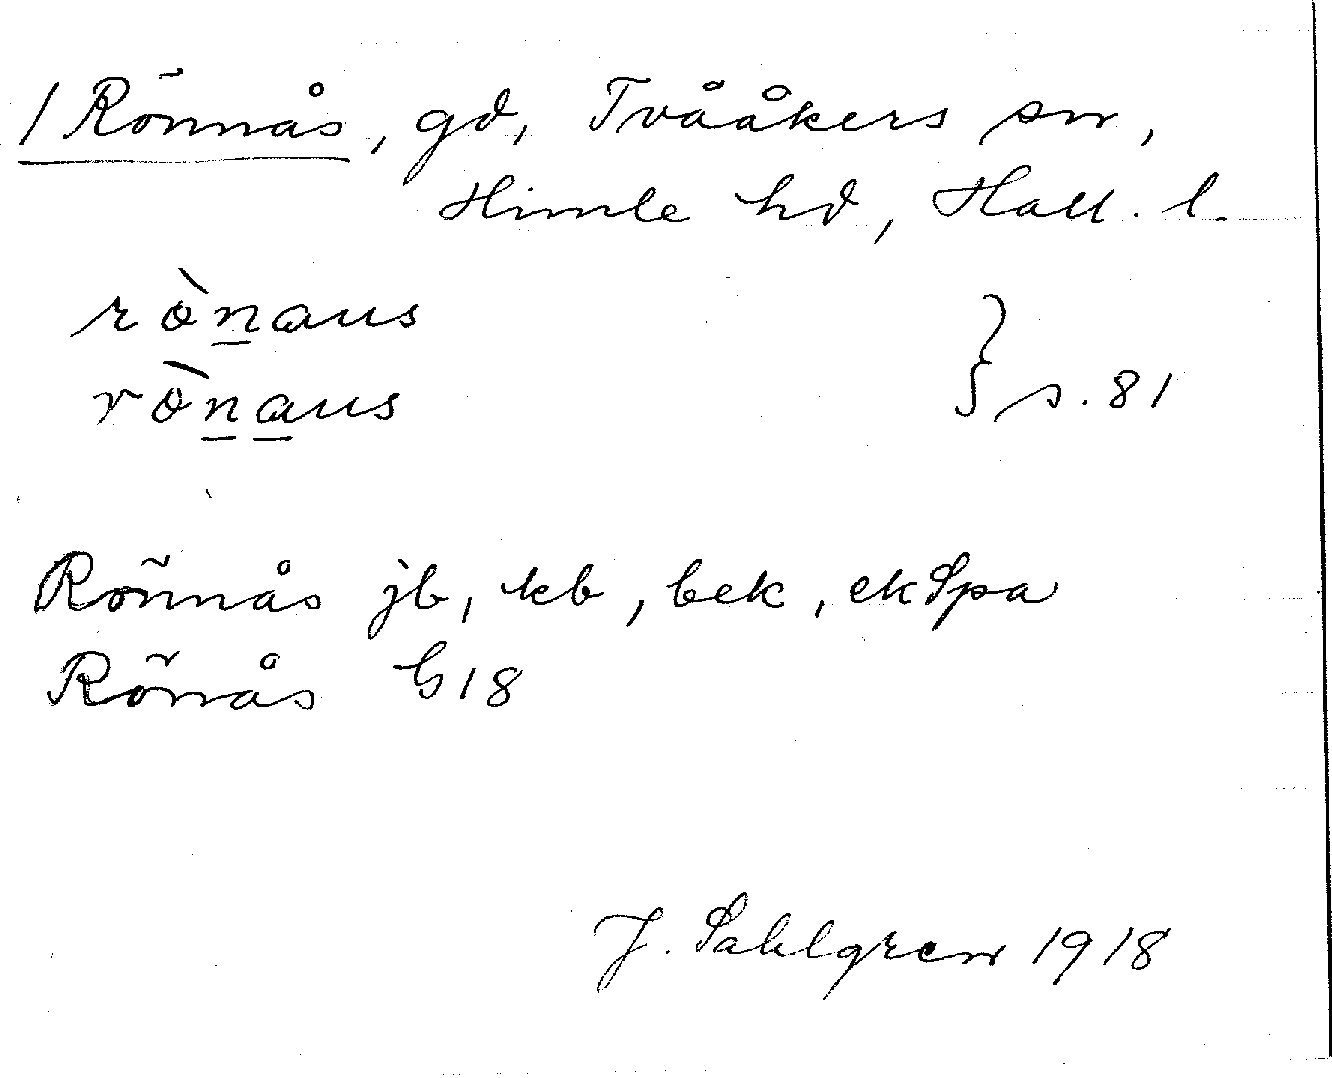 / Rönnås, gd, Tvååkers sn,
Himle hd, Hall. l.
rònaus
rònaus } s. 81
Rönnås jb, kb, bek, ekSpa
Rönås G18
J. Sahlgren 1918